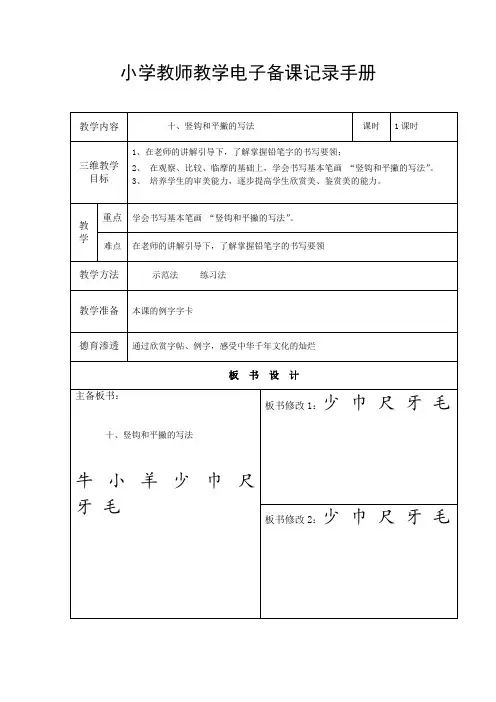 小学教师教学电子备课记录手册
教学内容 十、竖钩和平撇的写法 课时 1课时
三维教学目标
1、在老师的讲解引导下，了解掌握铅笔字的书写要领；
2、 在观察、比较、临摩的基础上，学会书写基本笔画 “竖钩和平撇的写法”。
3、 培养学生的审美能力，逐步提高学生欣赏美、鉴赏美的能力。
教学
重点 学会书写基本笔画 “竖钩和平撇的写法”。
难点 在老师的讲解引导下，了解掌握铅笔字的书写要领
教学方法 示范法 练习法
教学准备 本课的例字字卡
德育渗透 通过欣赏字帖、例字，感受中华千年文化的灿烂
板 书 设 计
主备板书：
十、竖钩和平撇的写法
牛 小 羊 少 巾 尺
牙 毛
板书修改1：少 巾 尺 牙 毛
板书修改2：少 巾 尺 牙 毛